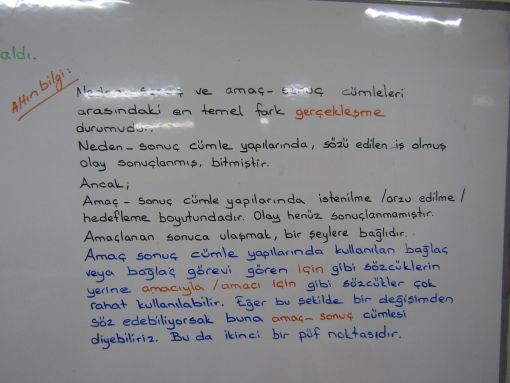 aldı.
Altın bilgi:
Neden - sonuç ve amaç - sonuç cümleleri
arasındaki en temel fark gerçekleşme
durumudur.
Neden - sonuç cümle yapılarında, sözü edilen iş olmuş
olay sonuçlanmış, bitmiştir.
Ancak;
Amaç - sonuç cümle yapılarında istenilme / arzu edilme /
hedefleme boyutundadır. Olay henüz sonuçlanmamıştır.
Amaçlanan sonuca ulaşmak, bir şeylere bağlıdır.
Amaç sonuç cümle yapılarında kullanılan bağlaç
veya bağlaç görevi gören için gibi sözcüklerin
yerine amacıyla / amacı için gibi sözcükler çok
rahat kullanılabilir. Eğer bu şekilde bir değişimden
söz edebiliyorsak buna amaç - sonuç cümlesi
diyebiliriz. Bu da ikinci bir püf noktasıdır.